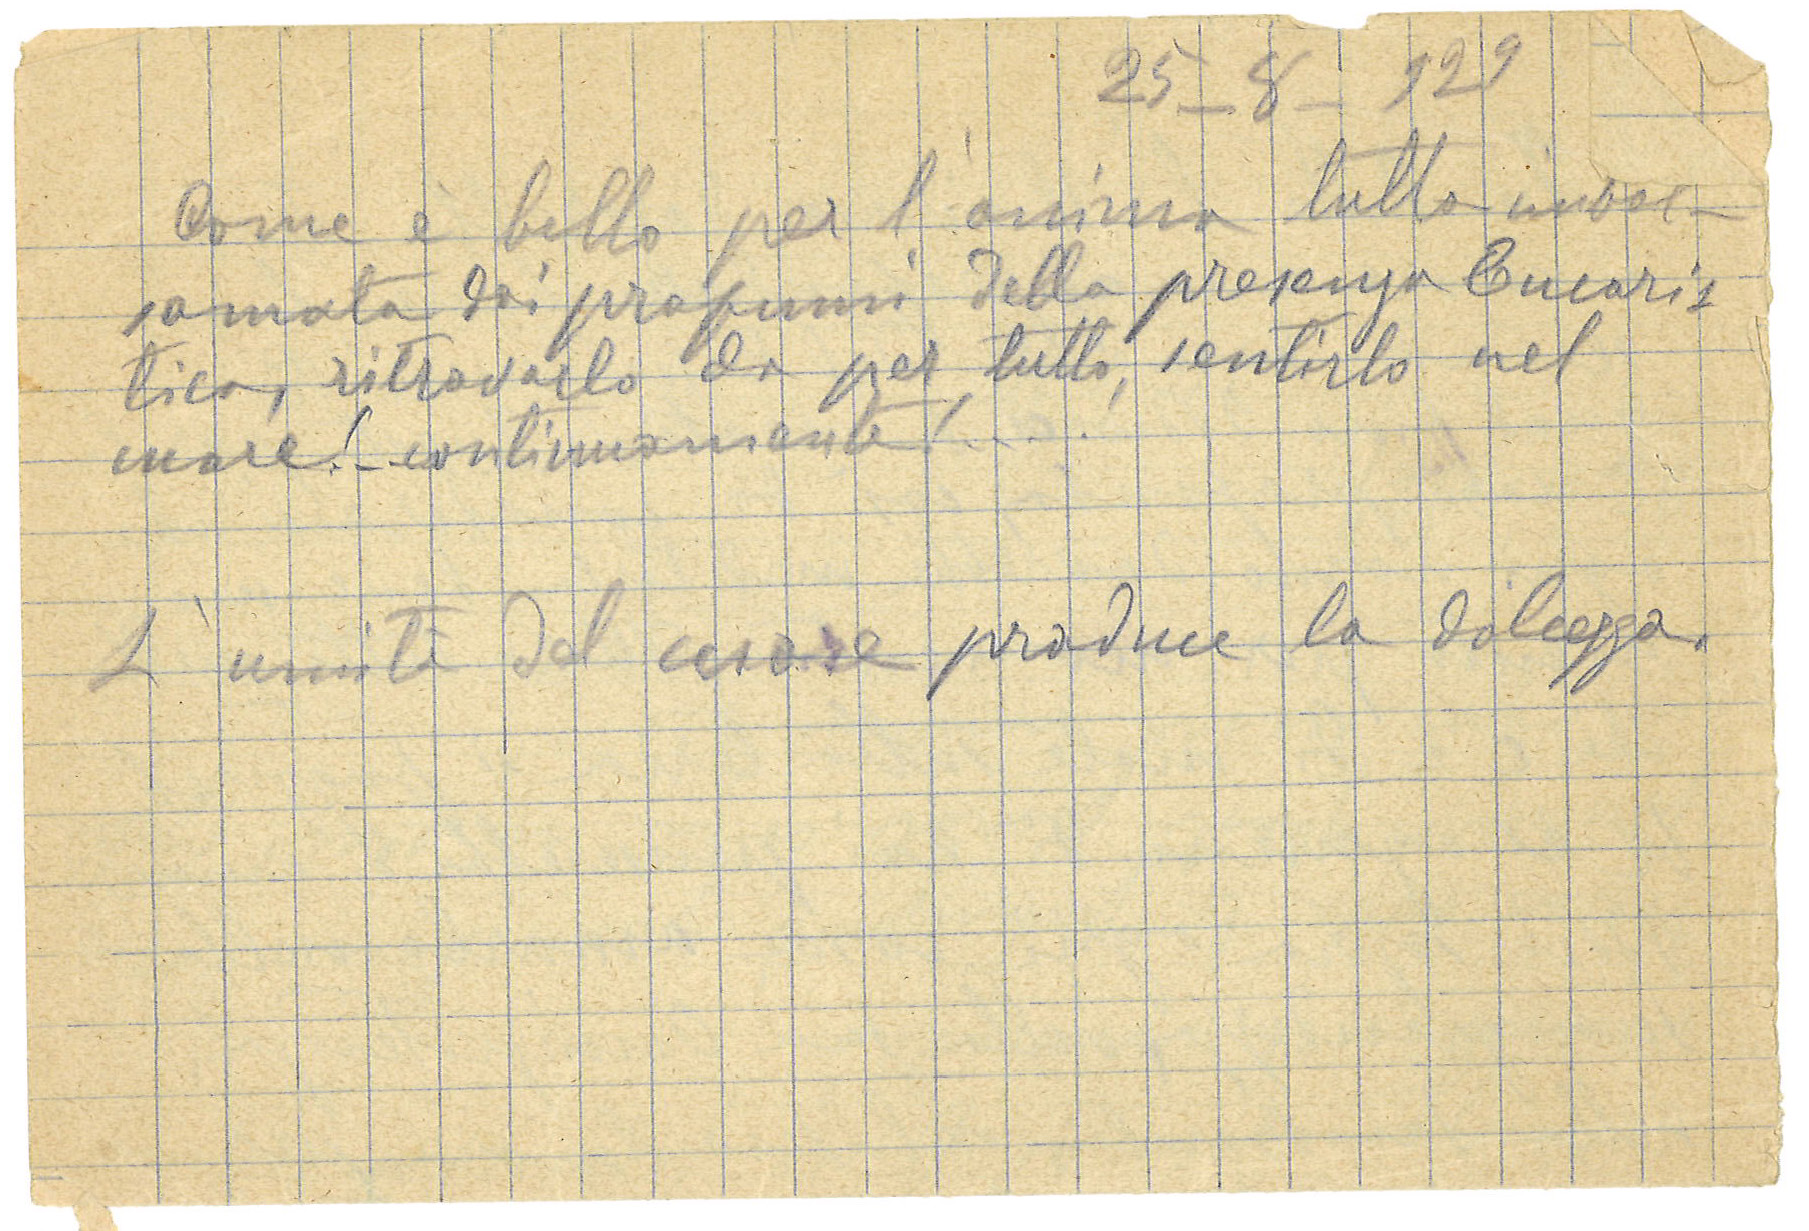 25-8-129
Come è bello per l'anima tutta imbal-
samata dai profumi della presenza Eucaris
tica, ritrovarlo da per tutto, sentirlo nel
cuore! - continuamente! . . . .
L'unità del cuore produce la dolcezza.